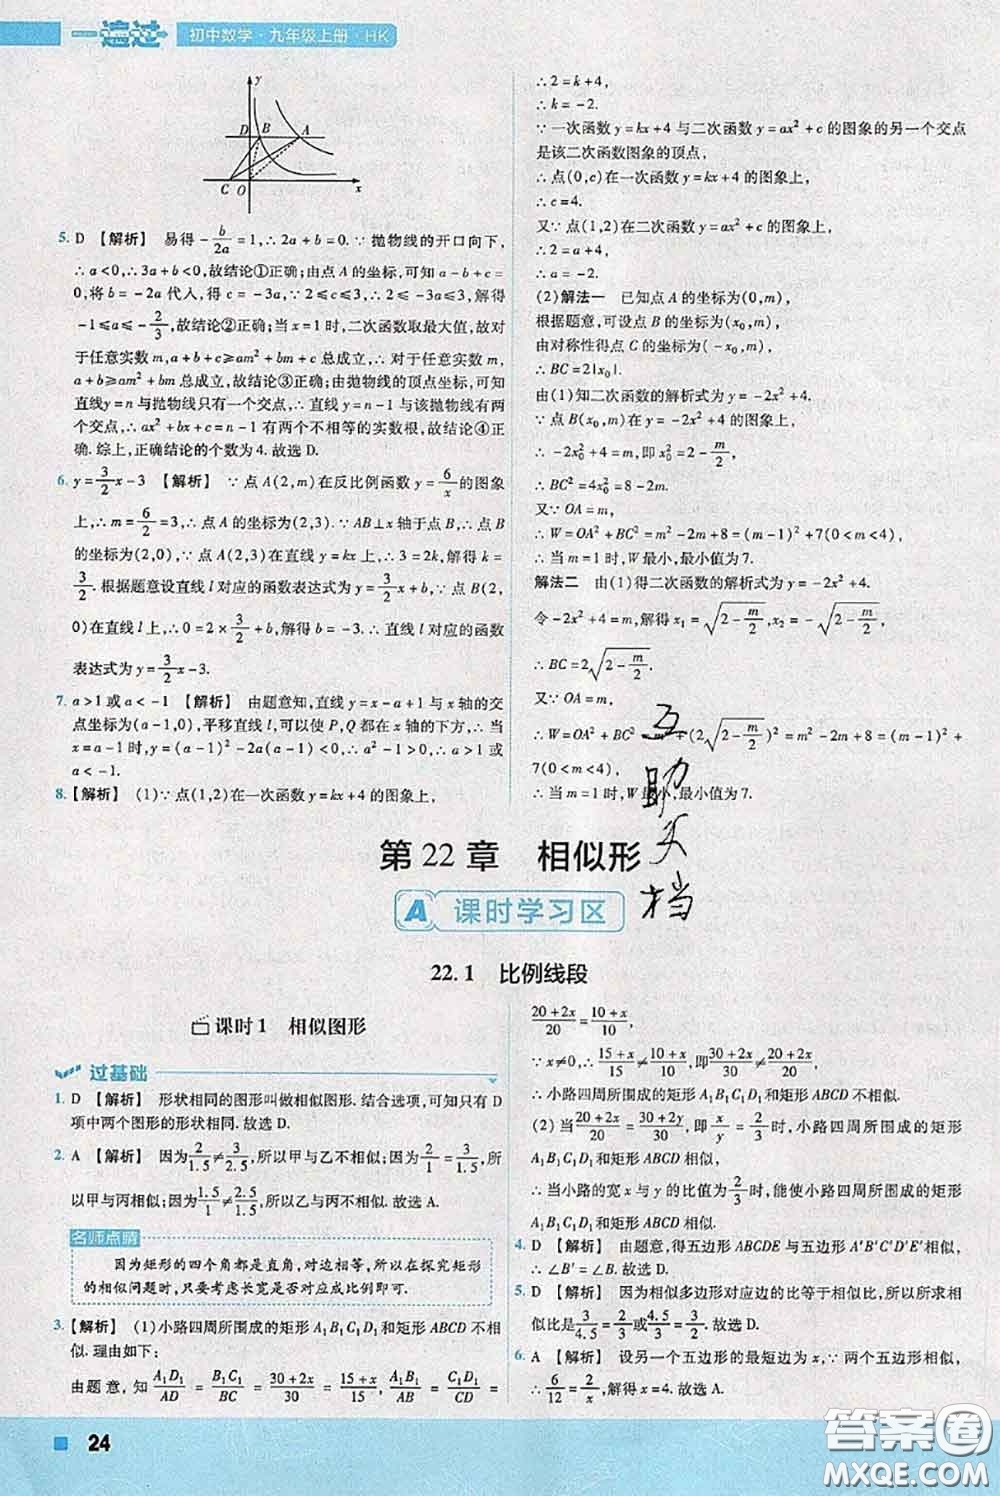 一遍过 初中数学·九年级上册·HK
y
D B A
C O x
5. D 【解析】 易得 -b/2a=1,∴2a+b=0.∵抛物线的开口向下,
∴a<0,∴3a+b<0,故结论①正确;由点 A 的坐标,可知 a-b+c=
0,将 b=-2a 代入,得 c=-3a,∵2≤c≤3,∴2≤-3a≤3,解得
-1≤a≤-2/3,故结论②正确;当 x=1 时,二次函数取最大值,故对
于任意实数 m,a+b+c≥am²+bm+c 总成立,∴对于任意实数 m,
a+b≥am²+bm 总成立,故结论③正确;由抛物线的顶点坐标,可知
直线y=n 与抛物线只有一个交点,∴直线 y=n-1 与该抛物线有两
个交点,∴ax²+bx+c=n-1 有两个不相等的实数根,故结论④正
确.综上,正确结论的个数为 4.故选 D.
6. y=3/2x-3 【解析】 ∵点 A(2,m)在反比例函数 y=6/x的图象
上,∴m=6/2=3,∴点 A 的坐标为(2,3).∵AB⊥x 轴于点 B,∴点 B
的坐标为(2,0),∵点 A(2,3)在直线 y=kx 上,∴3=2k,解得 k=
3/2.根据题意设直线 l 对应的函数表达式为 y=3/2x+b,∵点 B(2,
0)在直线 l 上,∴0=2×3/2+b,解得 b=-3.∴直线 l 对应的函数
表达式为 y=3/2x-3.
7. a>1 或 a<-1 【解析】 由题意知,直线 y=x-a+1 与 x 轴的交
点坐标为(a-1,0),平移直线 l,可以使 P,Q 都在 x 轴的下方,∴当
x=a-1 时,y=(a-1)²-2a(a-1)<0,∴a²-1>0,∴a>1 或
a<-1.
8. 【解析】 (1)∵点(1,2)在一次函数 y=kx+4 的图象上,
∴2=k+4,
∴k=-2.
∵一次函数 y=kx+4 与二次函数 y=ax²+c 的图象的另一个交点
是该二次函数图象的顶点,
∴点(0,c)在一次函数 y=kx+4 的图象上,
∴c=4.
又∵点(1,2)在二次函数 y=ax²+c 的图象上,
∴2=a+4,
∴a=-2.
(2)解法一 已知点 A 的坐标为(0,m),
根据题意,可设点 B 的坐标为(x₀,m),
由对称性得点 C 的坐标为(-x₀,m),
∴BC=2|x₀|.
由(1)知二次函数的解析式为 y=-2x²+4.
∵点 B(x₀,m)在二次函数的图象上,
∴-2x₀²+4=m,即 x₀²=2-m/2,
∴BC²=4x₀²=8-2m.
又∵OA=m,
∴W=OA²+BC²=m²-2m+8=(m-1)²+7(0<m<4),
∴当 m=1 时,W 最小,最小值为 7.
解法二 由(1)得二次函数的解析式为 y=-2x²+4.
令-2x²+4=m,解得 x₁=√(2-m/2),x₂=-√(2-m/2),
∴BC=2√(2-m/2).
又∵OA=m,
∴W=OA²+BC² m²+(2√(2-m/2))²=m²-2m+8=(m-1)²+
7(0<m<4),
∴当 m=1 时,W最小,最小值为 7.
互
助
文
档
第 22 章 相似形
A 课时学习区
22.1 比例线段
课时 1 相似图形
过基础
1. D 【解析】 形状相同的图形叫做相似图形.结合选项,可知只有 D
项中两个图形的形状相同.故选 D.
2. A 【解析】 因为2/1.5≠3/2.5,所以甲与乙不相似;因为2/1=3/1.5,所
以甲与丙相似;因为1.5/1≠2.5/1.5,所以乙与丙不相似.故选 A.
名师点睛
因为矩形的四个角都是直角,对边相等,所以在探究矩形
的相似问题时,只要考虑长宽是否对应成比例即可.
3. 【解析】 (1)小路四周所围成的矩形 A₁B₁C₁D₁和矩形 ABCD 不相
似.理由如下:
由题意,知 A₁D₁/AD=B₁C₁/BC=(30+2x)/30=(15+x)/15,A₁B₁/AB=C₁D₁/CD=
(20+2x)/20=(10+x)/10,
∵x≠0,∴(15+x)/15≠(10+x)/10,即(30+2x)/30≠(20+2x)/20,
∴小路四周所围成的矩形 A₁B₁C₁D₁和矩形 ABCD 不相似.
(2)当(20+2x)/20=(30+2y)/30,即x/y=2/3时,小路四周所围成的矩形
A₁B₁C₁D₁和矩形 ABCD 相似,
∴当小路的宽 x 与 y 的比值为2/3时,能使小路四周所围成的矩形
A₁B₁C₁D₁和矩形 ABCD 相似.
4. D 【解析】 由题意,得五边形 ABCDE 与五边形 A'B'C'D'E'相似,
∴∠B'=∠B.故选 D.
5. D 【解析】 因为相似多边形对应边的比等于相似比,所以所求相
似比是3/4.5=2/3或4.5/3=3/2.故选 D.
6. A 【解析】 设另一个五边形的最短边为 x,∵两个五边形相似,
∴6/12=2/x,解得 x=4.故选 A.
24
答案圈
MXQE.COM